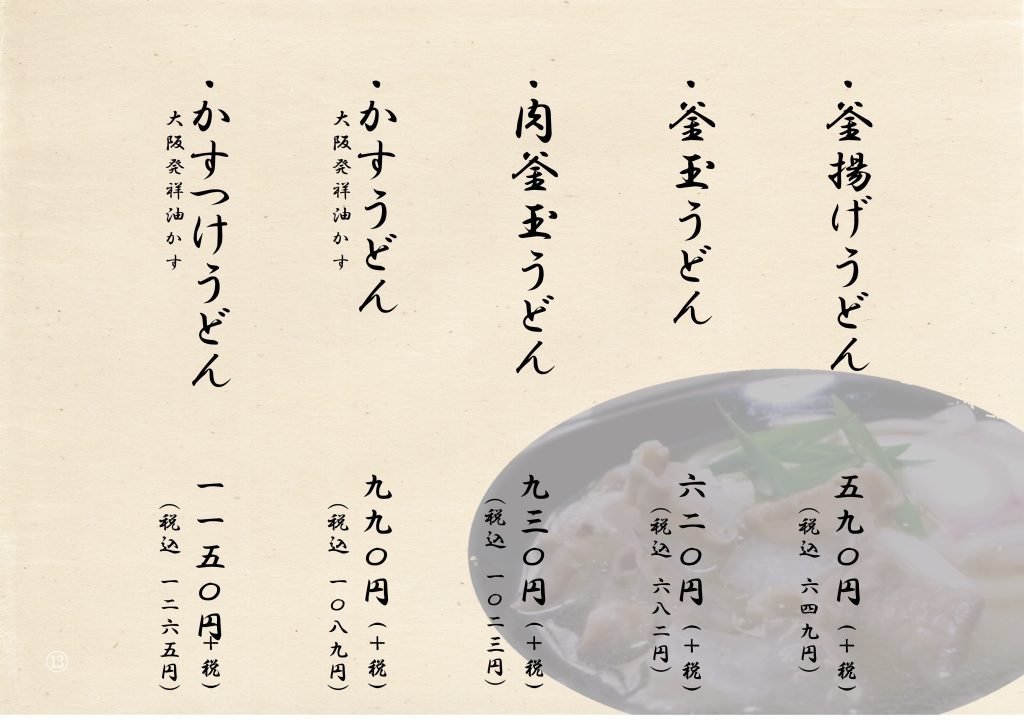 ・釜揚げうどん
五九〇円（＋税）
（税込 六四九円）
・釜玉うどん
六二〇円（＋税）
（税込 六八二円）
・肉釜玉うどん
九三〇円（＋税）
（税込 一〇二三円）
・かすうどん
大阪発祥油かす
九九〇円（＋税）
（税込 一〇八九円）
・かすつけうどん
大阪発祥油かす
一一五〇円（＋税）
（税込 一二六五円）
⑬